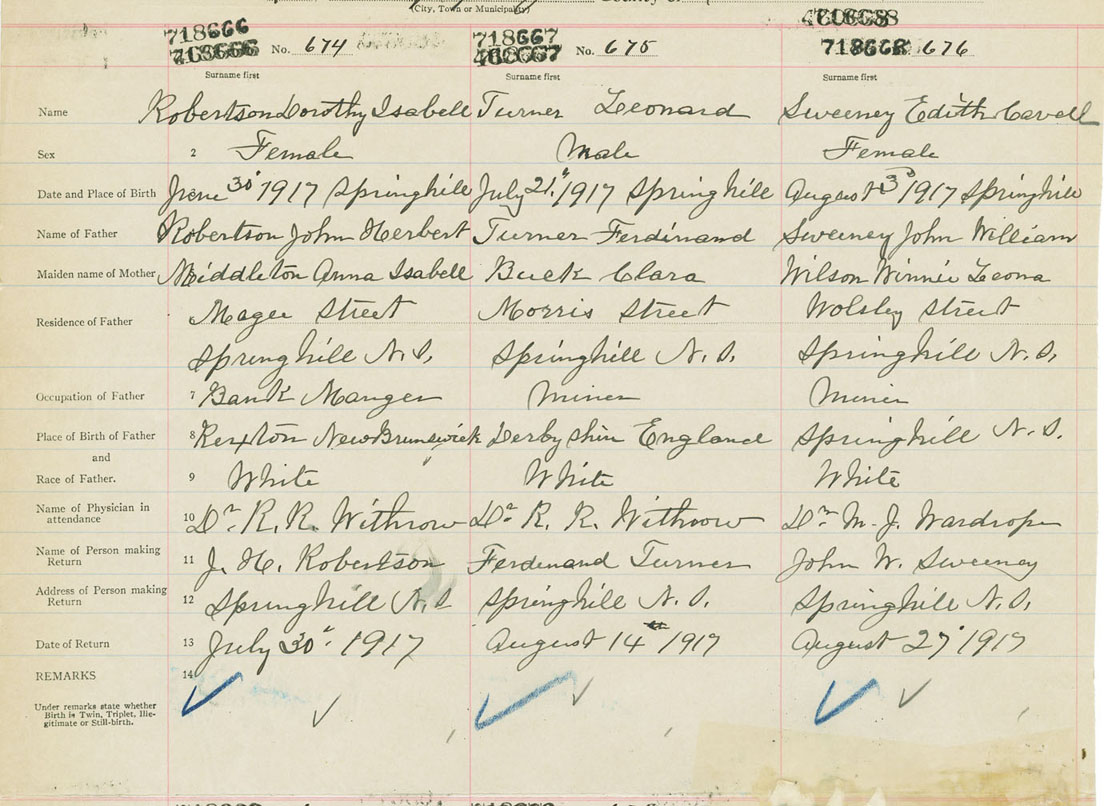 (City, Town or Municipality)
718666 718667
No. 674 No. 675 718668 676
Surname first Surname first Surname first
Name Robertson Dorothy Isabell Turner Leonard Sweeney Edith Cavell
Sex 2 Female Male Female
Date and Place of Birth June 30" 1917 Springhill July 21" 1917 Springhill August 3" 1917 Springhill
Name of Father Robertson John Herbert Turner Ferdinand Sweeney John William
Maiden name of Mother Middleton Anna Isabell Buck Clara Wilson Winnie Leona
Residence of Father Magee Street Morris Street Wolsley Street
Springhill N.S. Springhill N.S. Springhill N.S.
Occupation of Father 7 Bank Manger Miner Miner
Place of Birth of Father 8 Rexton New Brunswick Derbyshire England Springhill N.S.
and
Race of Father. 9 White White White
Name of Physician in attendance 10 Dr R. R. Withrow Dr R. R. Withrow Dr M. J. Wardrope
Name of Person making Return 11 J. H. Robertson Ferdinand Turner John W. Sweeney
Address of Person making Return 12 Springhill N.S Springhill N.S. Springhill N.S.
Date of Return 13 July 30" 1917 August 14 1917 August 27" 1917
REMARKS 14
Under remarks state whether
Birth is Twin, Triplet, Ille-
gitimate or Still-birth.